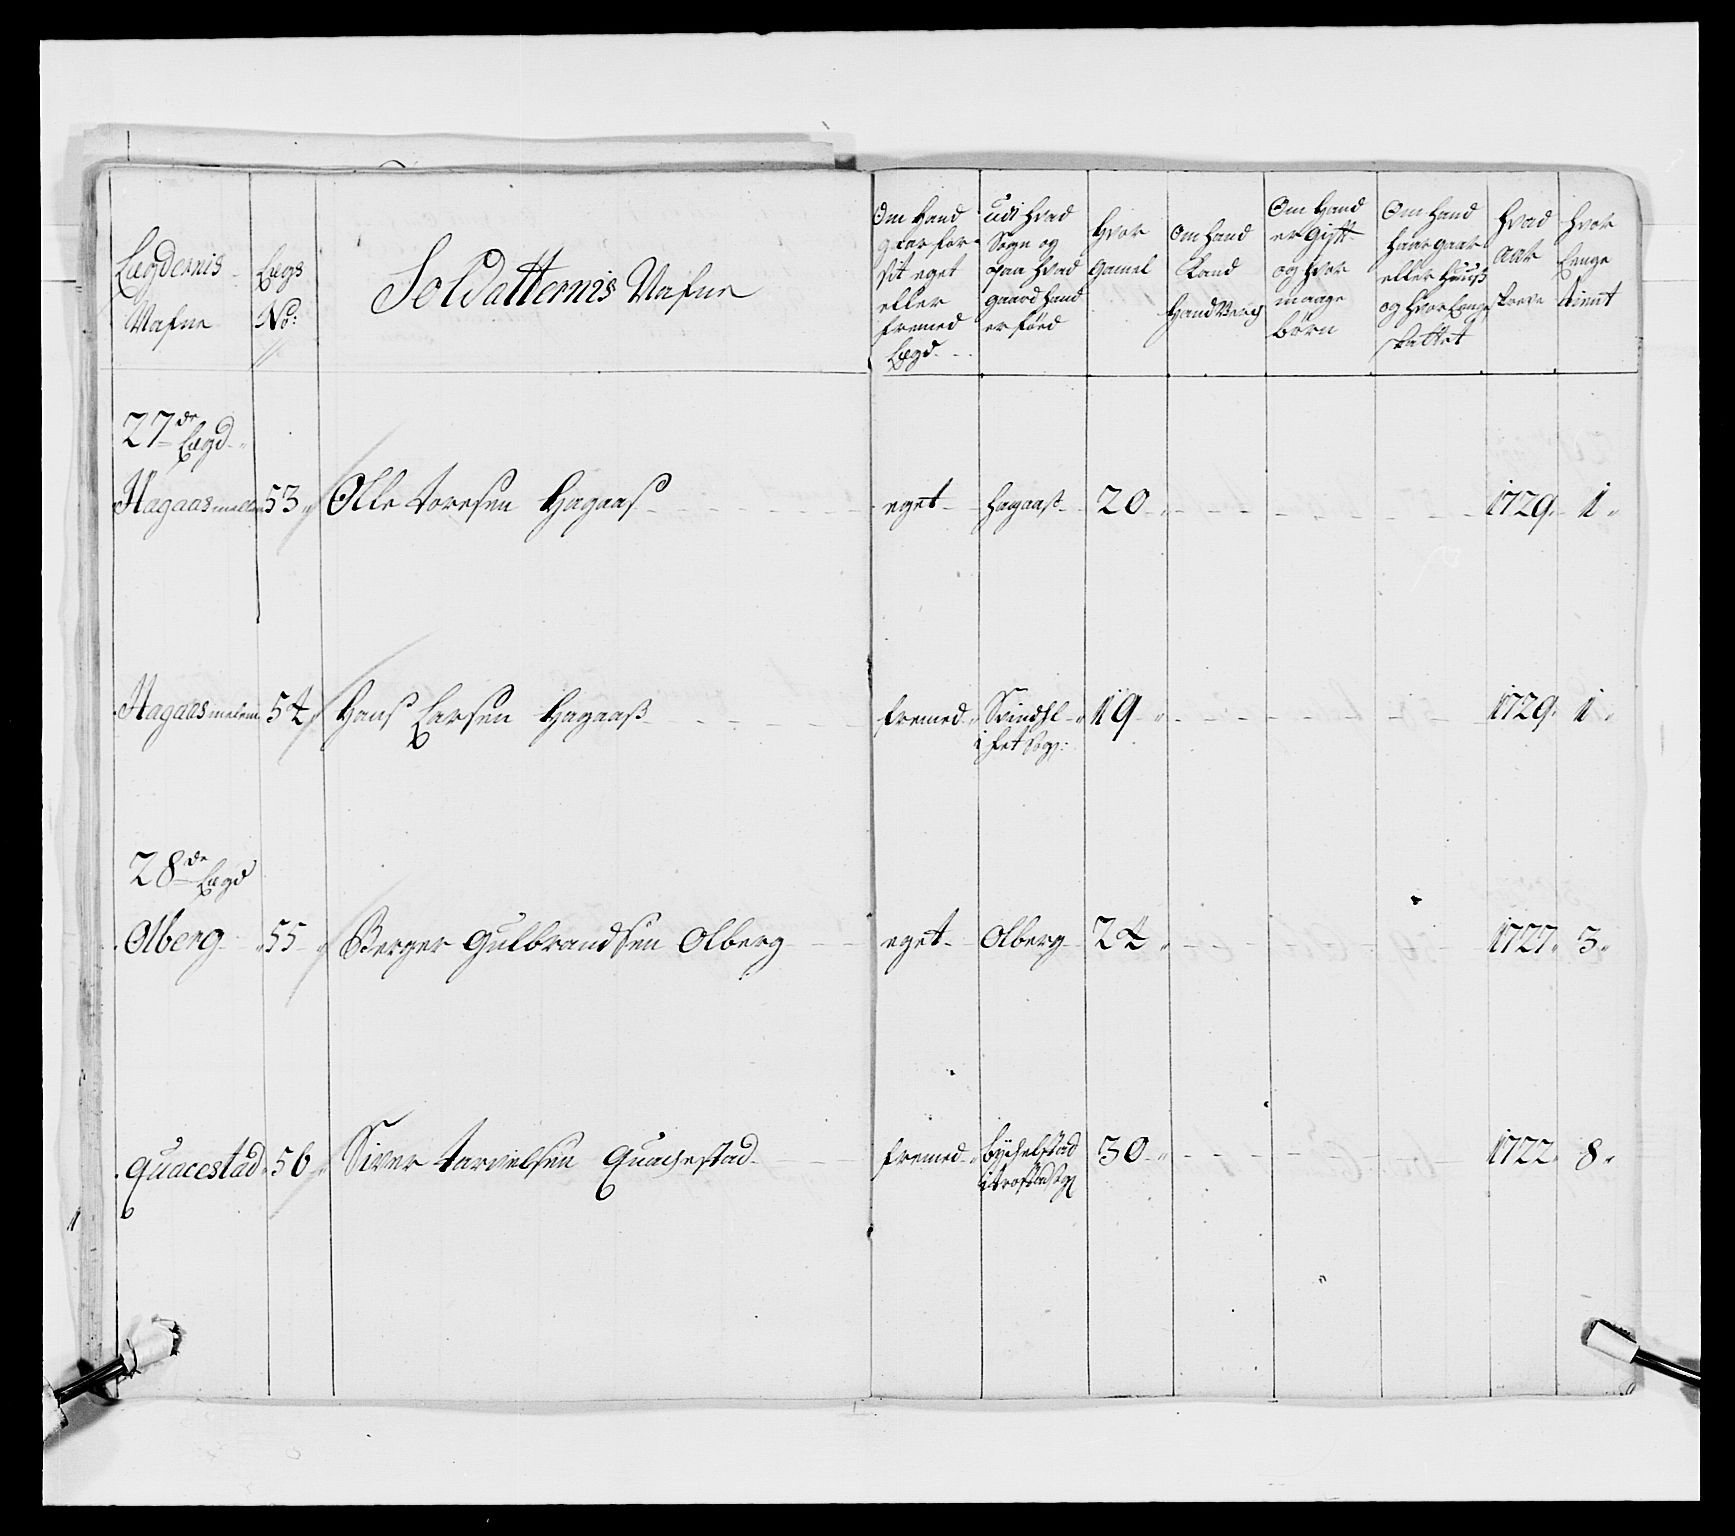 Lægdernis Nafne
Lægs No:
Soldatternis Nafne
Om hand gaar for sit eget eller fremed Lægd
Udi hvad Sogn og paa hvad gaard hand er føed
hvor gamel
Om hand kand handverch
Om hand er gifft og hvor mange børn
Om hand haar gaar eller huuss og hvor Lenge skattet
hvad aar
hvor Lenge tiennt
27de Lægd
Hagaas mellem 53 Olle toresen Hagaas eget hagaas 20 1729 1
Hagaas melem 54 Hans Larsen Hagaass fremed Svindhl 19 1729 1
i fet Sog:
28de Lægd
Olberg 55 Berger Gulbrandsen Olberg eget Olberg 24 1727 3
Quacestad 56 Siver tarvelsen Quachestad fremed 30 1722 8